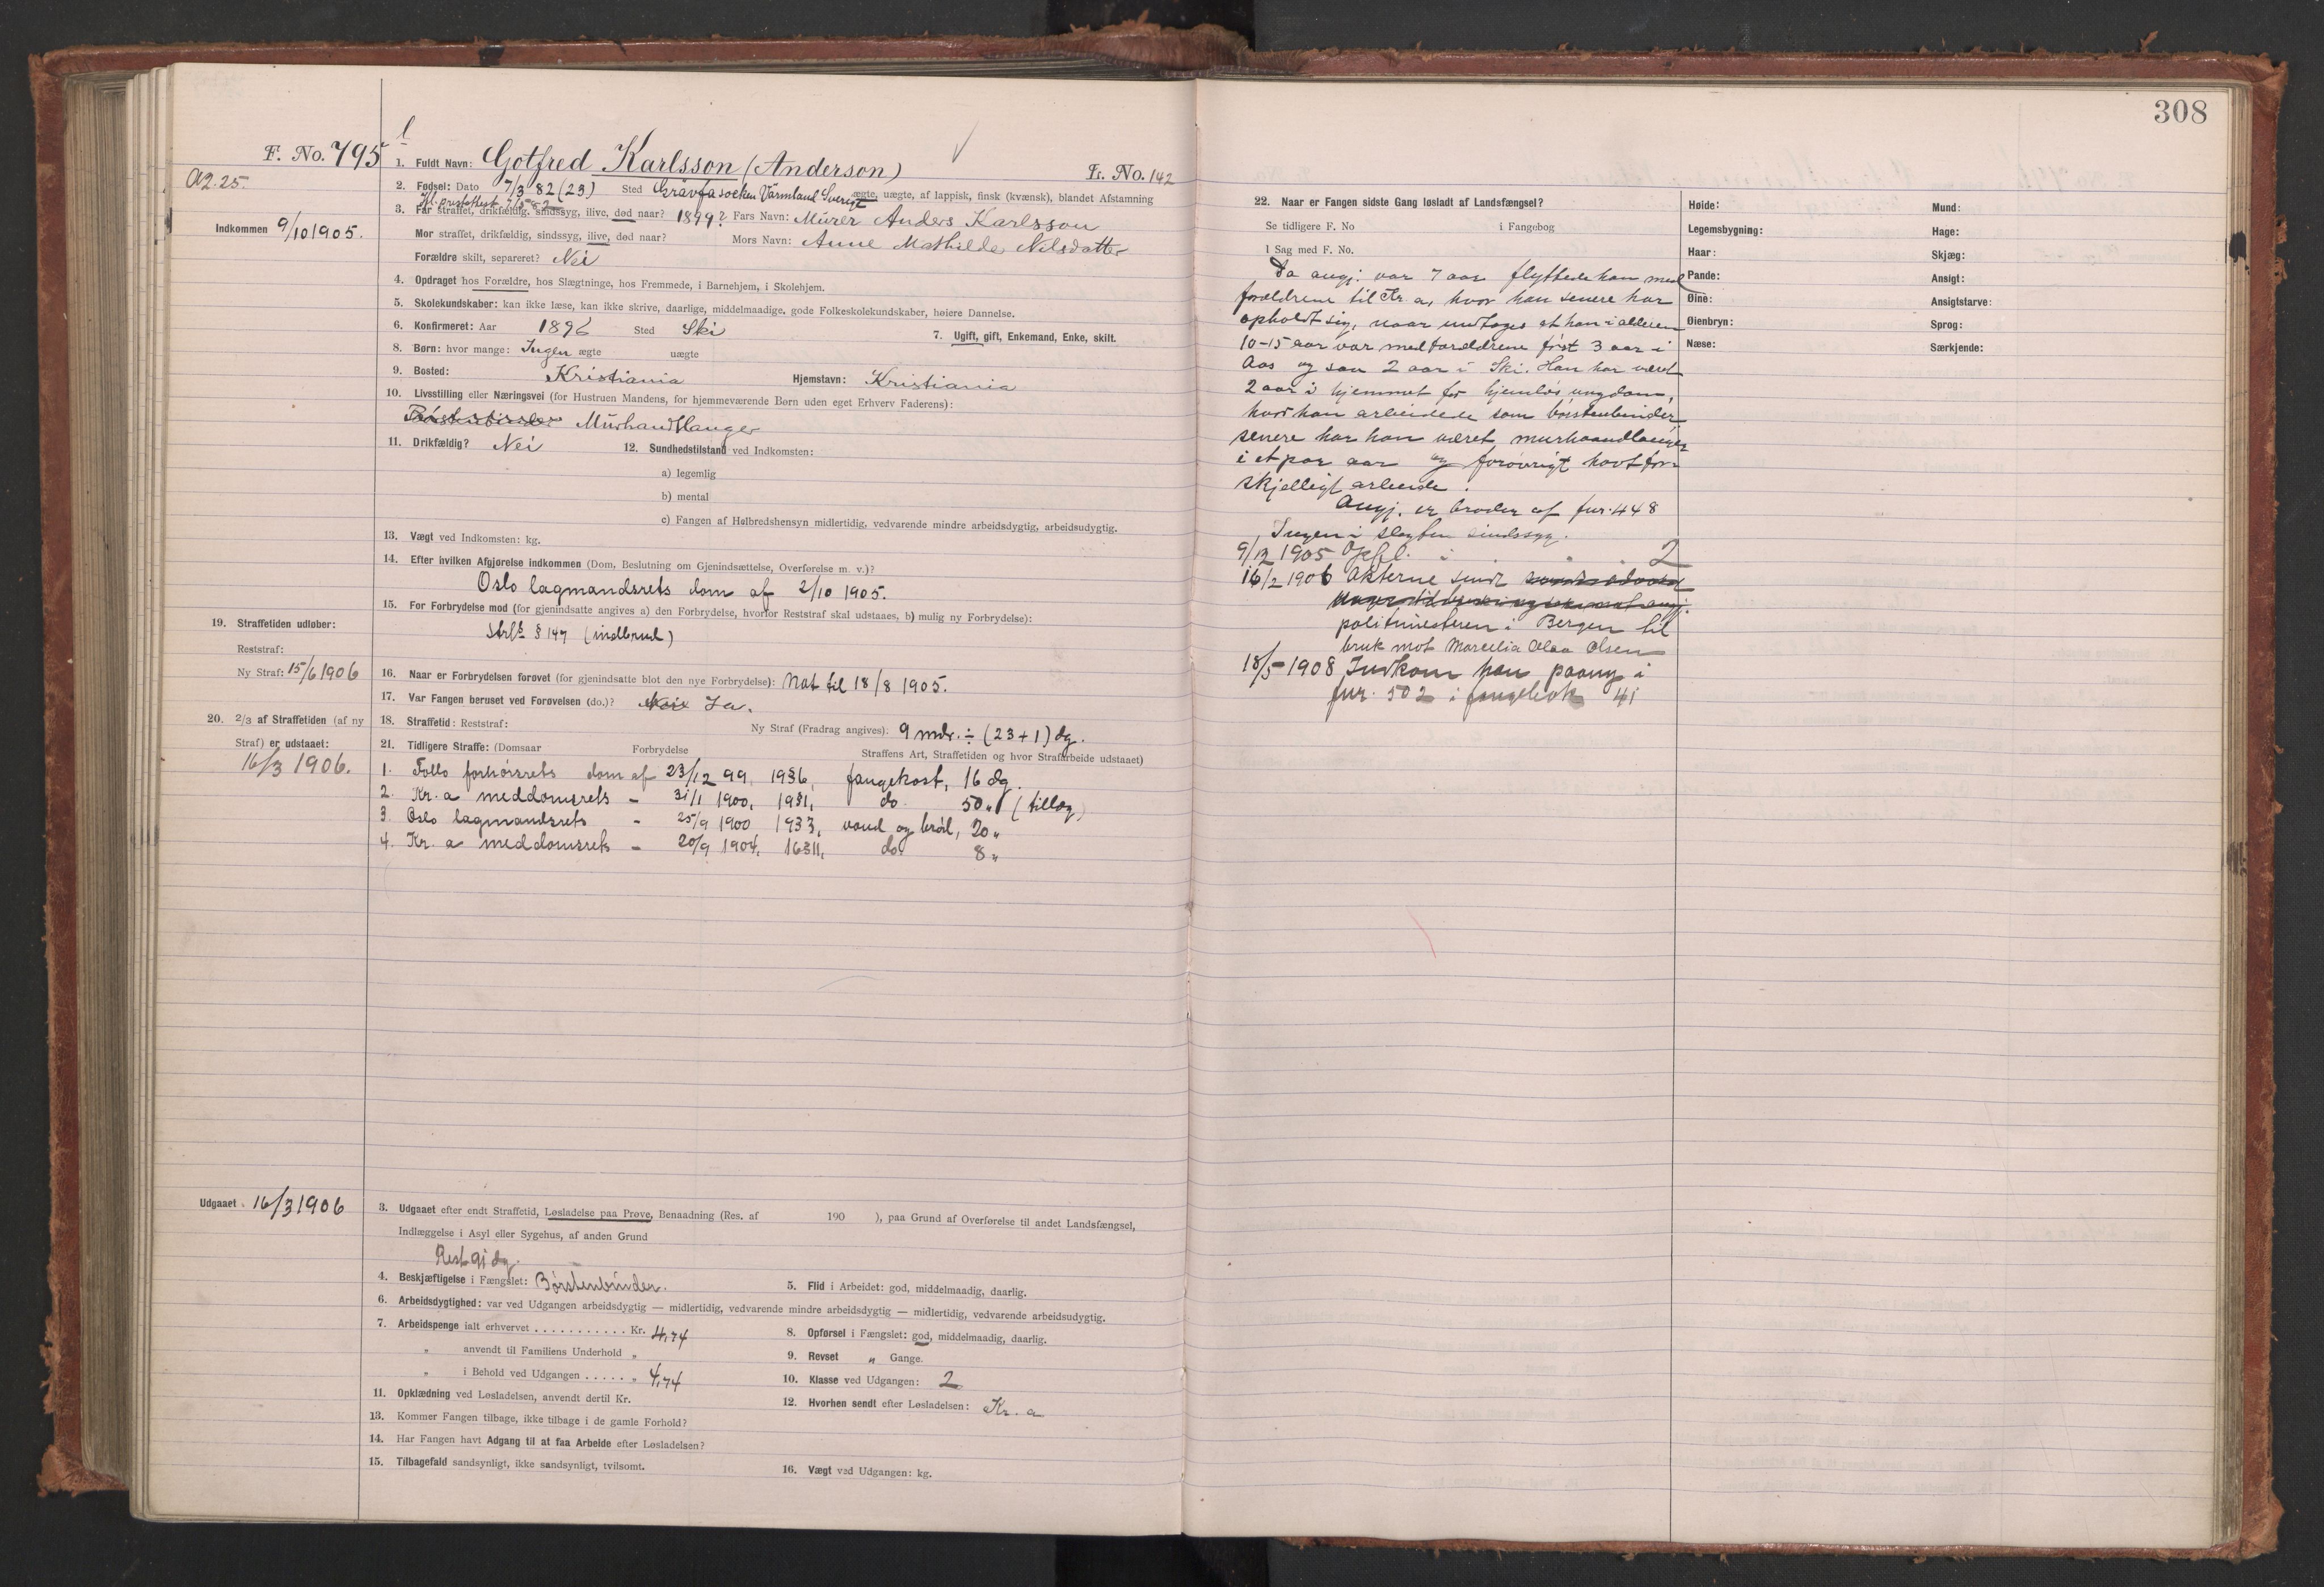 308
F. No. 795
1. Fuldt Navn: Gotfred Karlsson (Anderson)
Fr. No. 142
A2.25.
2. Fødsel: Dato 7/3 82 (23) Sted Gråvfasocken Värmland Sverige ægte, uægte, af lappisk, finsk (kvænsk), blandet Afstamning
3. Far straffet, drikfældig, sindssyg, ilive, død naar? 1899? Fars Navn: Mürer Anders Karlsson
Indkommen 9/10 1905.
Mor straffet, drikfældig, sindssyg, ilive, død naar? Mors Navn: Anne Mathilde Nilsdatter
Forældre skilt, separeret? Nei
4. Opdraget hos Forældre, hos Slægtninge, hos Fremmede, i Barnehjem, i Skolehjem.
5. Skolekundskaber: kan ikke læse, kan ikke skrive, daarlige, middelmaadige, gode Folkeskolekundskaber, høiere Dannelse.
6. Konfirmeret: Aar 1896 Sted Ski
7. Ugift, gift, Enkemand, Enke, skilt.
8. Børn: hvor mange: Ingen ægte uægte
9. Bosted: Kristiania Hjemstavn: Kristiania
10. Livsstilling eller Næringsvei (for Hustruen Mandens, for hjemmeværende Børn uden eget Erhverv Faderens):
Børstenbinder Mürhandtlanger
11. Drikfældig? Nei 12. Sundhedstilstand ved Indkomsten:
a) legemlig
b) mental
c) Fangen af Helbredshensyn midlertidig, vedvarende mindre arbeidsdygtig, arbeidsudygtig.
13. Vægt ved Indkomsten: kg.
14. Efter hvilken Afgjørelse indkommen (Dom, Beslutning om Gjenindsættelse, Overførelse m. v.)?
Oslo lagmandsrets dom af 2/10 1905.
15. For Forbrydelse mod (for gjenindsatte angives a) den Forbrydelse, hvorfor Reststraf skal udstaaes, b) mulig ny Forbrydelse):
Strlb § 147 (indbrud)
19. Straffetiden udløber:
Reststraf:
Ny Straf: 15/6 1906
16. Naar er Forbrydelsen forøvet (for gjenindsatte blot den nye Forbrydelse): Nat til 18/8 1905.
17. Var Fangen beruset ved Forøvelsen (do.)? Nei Ja.
20. 2/3 af Straffetiden (af ny
Straf) er udstaaet:
16/3 1906.
18. Straffetid: Reststraf: Ny Straf (Fradrag angives): 9 mdr. ÷ (23+1) dg.
21. Tidligere Straffe: (Domsaar Forbrydelse Straffens Art, Straffetiden og hvor Strafarbeide udstaaet)
1. Follo forhørsrets dom af 23/12 99, 1936, fangekost, 16 dg.
2. Kr.a meddomsrets - 31/1 1900, 1931, do 50 " (tillæg)
3. Oslo lagmandsrets - 25/9 1900 1933, vand og brød, 20 "
4. Kr.a meddomsrets - 20/9 1904, do. 8 "
Udgaaet 16/3 1906
3. Udgaaet efter endt Straffetid, Løsladelse paa Prøve, Benaadning (Res. af 190 ), paa Grund af Overførelse til andet Landsfængsel,
Indlæggelse i Asyl eller Sygehus, af anden Grund
Rest 91 dg.
4. Beskjæftigelse i Fængslet: Børstenbinder.
5. Flid i Arbeidet: god, middelmaadig, daarlig.
6. Arbeidsdygtighed: var ved Udgangen arbeidsdygtig — midlertidig, vedvarende mindre arbeidsdygtig — midlertidig, vedvarende arbeidsudygtig.
7. Arbeidspenge ialt erhvervet . . . . . . . . . . . Kr. 4,74
8. Opførsel i Fængslet: god, middelmaadig, daarlig.
" anvendt til Familiens Underhold "
9. Revset " Gange.
" i Behold ved Udgangen . . . . . " 4,74
10. Klasse ved Udgangen: 2
11. Opklædning ved Løsladelsen, anvendt dertil Kr.
12. Hvorhen sendt efter Løsladelsen: Kr. a
13. Kommer Fangen tilbage, ikke tilbage i de gamle Forhold?
14. Har Fangen havt Adgang til at faa Arbeide efter Løsladelsen?
15. Tilbagefald sandsynligt, ikke sandsynligt, tvilsomt.
16. Vægt ved Udgangen: kg.
22. Naar er Fangen sidste Gang løsladt af Landsfængsel?
Se tidligere F. No i Fangebog
I Sag med F. No.
Da angj. var 7 aar flyttede han med
forældrene til Kr. a, hvor han senere har
opholdt sig, naar undtages at han i alderen
10-15 aar var med forældrene først 3 aar i
Aas og saa 2 aar i Ski. Han har været
2 aar i hjemmet for hjemløs ungdom,
hvor han arbeidede som børstenbinder
senere har han været murhaandlanger
i et par aar og forøvrigt havt for-
skjelligt arbeide.
Angj. er broder af fur. 448
Ingen i slægten sindssyg.
9/12 1905 Opfl. i " " 2
16/2 1906 Akterne sendt
politimesteren i Bergen til
bruk mot Marcelia Olea Olsen
18/5 1908 Indkom han paany i
fur. 502 i fangebok 41
Høide:
Legemsbygning:
Haar:
Pande:
Øine:
Øienbryn:
Næse:
Mund:
Hage:
Skjæg:
Ansigt:
Ansigtstarve:
Sprog:
Særkjende: